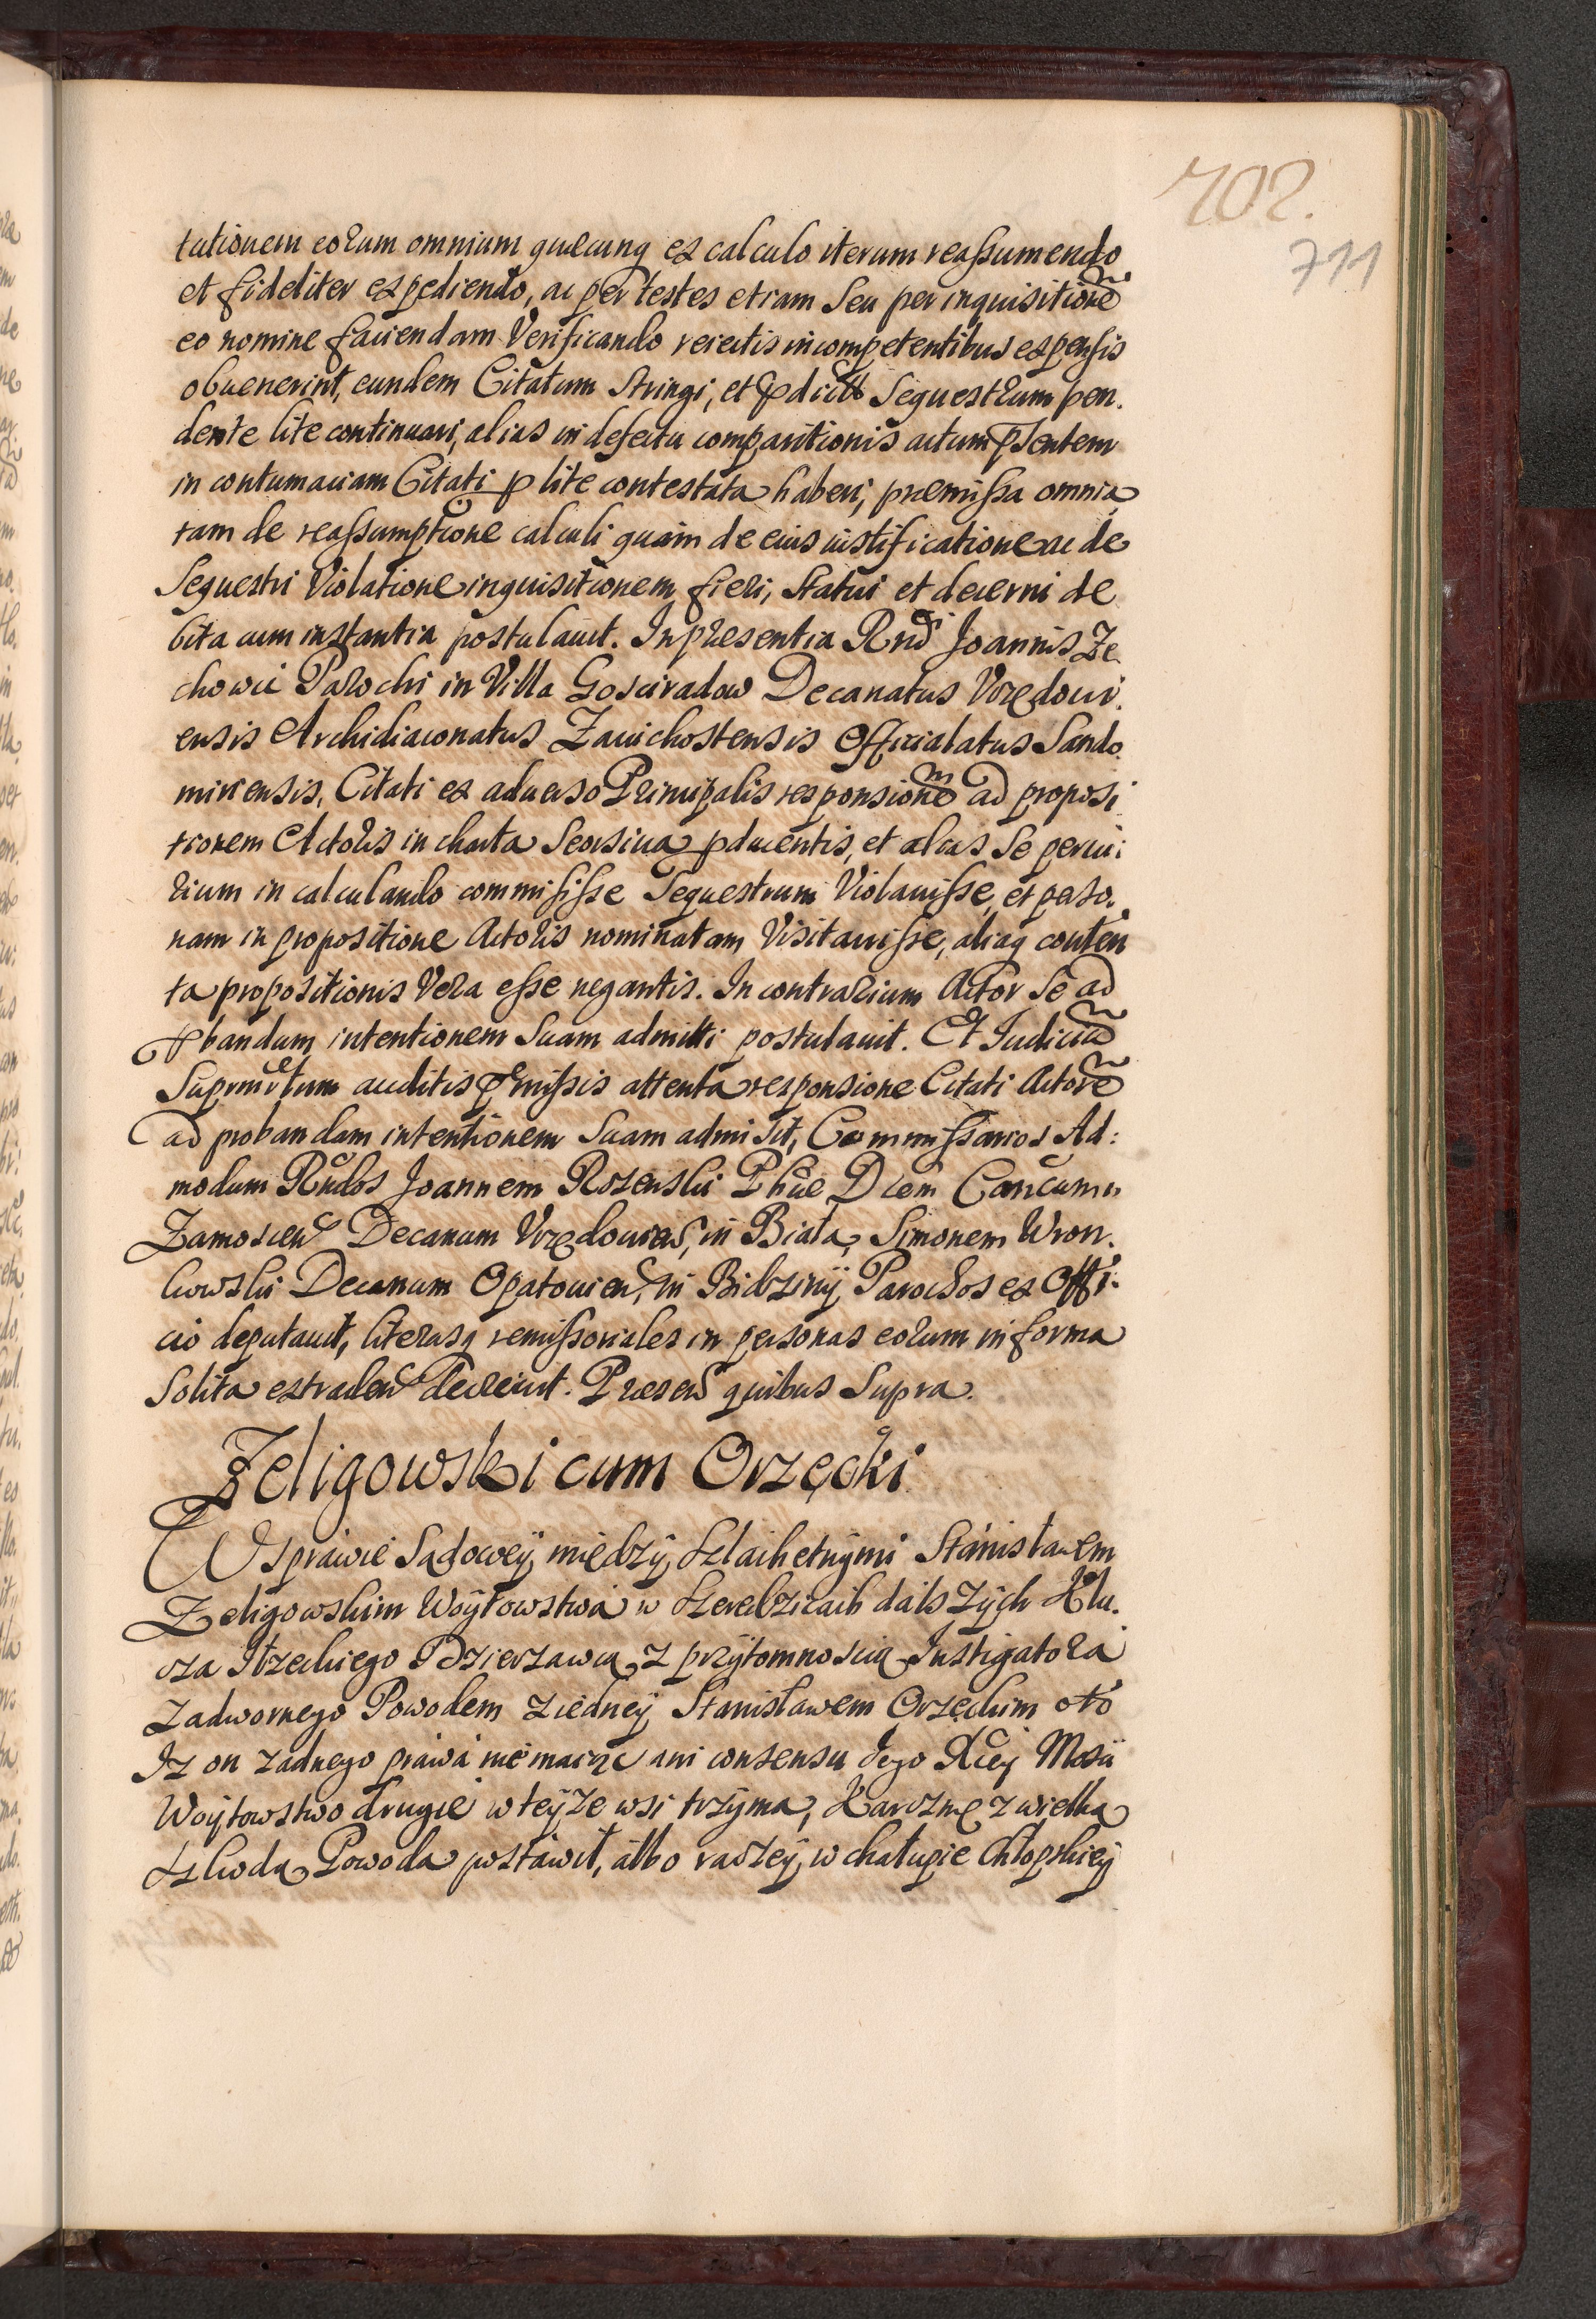 702.
711
tationem eorum omnium quæcunq ex calculo iterum reassumendo
et fideliter expediendo, ac per testes etiam Seu per inquisitionē
eo nomine faciendam Verificando reiectis incompetentibus expensis
obvenerint, eundem Citatum Stringi, et pdictū Sequestrum pen.
dente lite continuari, alias in defectu comparitionis actum pſentem
in contumaciam Citati p lite contestata haberi, præmissa omnia
tam de reassumptione calculi quam de eius iustificatione ac de
Sequestri Violatione inquisitionem fieri, Statui et decerni de
bita cum instantia postulavit. In præsentia Rnd Joannis Ze
chowic Parochi in Villa Gosciradow Decanatus Vrzędovi.
ensis Archidiaconatus Zavichostensis Officialatus Sando
miriensis, Citati ex adverso Principalis responsionē ad proposi
tionem Actoris in charta Seorsiva pducentis, et alias Se periu:
rium in calculando commisisse Sequestrum Violavisse, et perso.
nam in propositione Actoris nominatam Visitavisse, aliaq conten
ta propositionis Vera esse negantis. In contrarium Actor Se ad
pbandum intentionem Suam admitti postulavit. Et Iudiciū
Supremū tum auditis pmissis attenta responsione Citati Actorē
ad probandam intentionem Suam admisit, Commissarios Ad:
modum Rndos Joannem Rozenski Phiæ Drem Cancum
Zamoscien Decanum Vrzędovien, in Biała, Simonem Wron.
kowski Decanum Opatovien, in Bidziny Parochos ex Offi.
cio deputavit, literasq remissoriales in personas eorum in forma
Solita extraden decrevit. Præsen quibus Supra.
Zeligowski cum Orzęcki
W Sprawie Sądowey między Szlachetnymi Stanisławem
Zeligowskim Woytowstwa w Szeredzicach dalszych Klu.
cza Iłzeckiego Dzierzawcą z przytomnoscią Instigatora
Zadwornego Powodem z iedney Stanisławem Orzęckim oto
Iz on zadnego prawa nie maiąc ani consensu Jego Xcey Mosci
Woytowstwo drugie w teyze wsi trzyma, Karczmę z wielką
Szkodą Powoda postawił, albo raczey w chałupie Chłopskiey